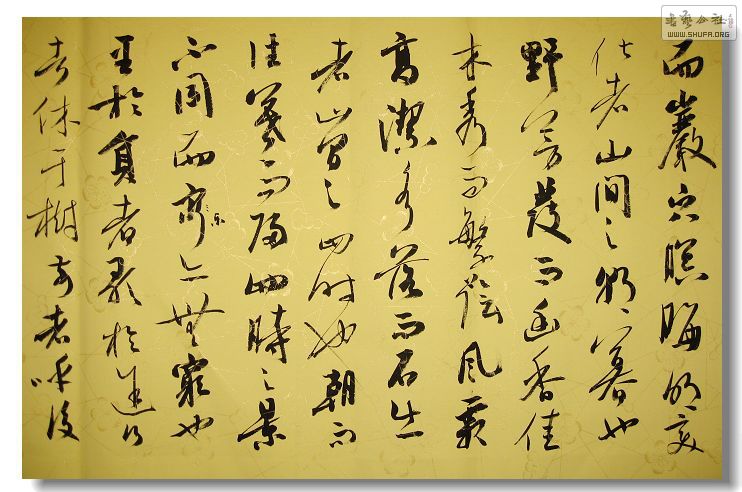 書藝公社
WWW.SHUFA.ORG
而巖穴暝晦明变
化者山間之朝暮也
野芳發而幽香佳
木秀而繁蔭風霜
高潔水落而石出
者山間之四時也朝而
往暮而歸四時之景
不同而樂亦無窮也
至於負者歌於途行
者休于樹前者呼後